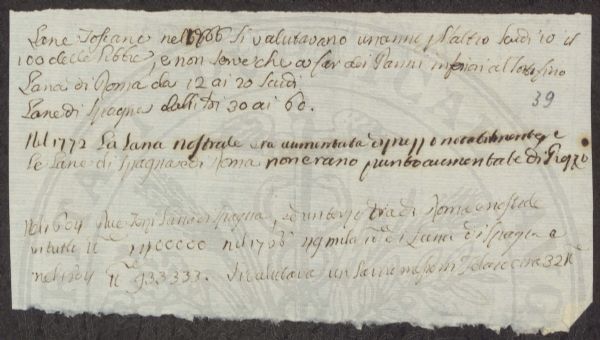 Lane Toscane nel 1766 si valutavano un anno p l'altro Scudi 10 il
100 delle libbre, e non serve che a far dei Panni inferiori al
Lana di Roma da 12 ai 20 Scudi
Lane di Spagna dalli 30 ai 60.
39
Nel 1772 La Lana nostrale era aumentata di prezzo notabilmente, e
le Lane di Spagna e di Roma non erano punto aumentate di Prezzo
Nel 1604 due Terzi Lana di Spagna, ed un terzo tra di Roma e nostrale
in tutto nel di Lana di Spagna e
nel 1604 933333. Si valutava un 32